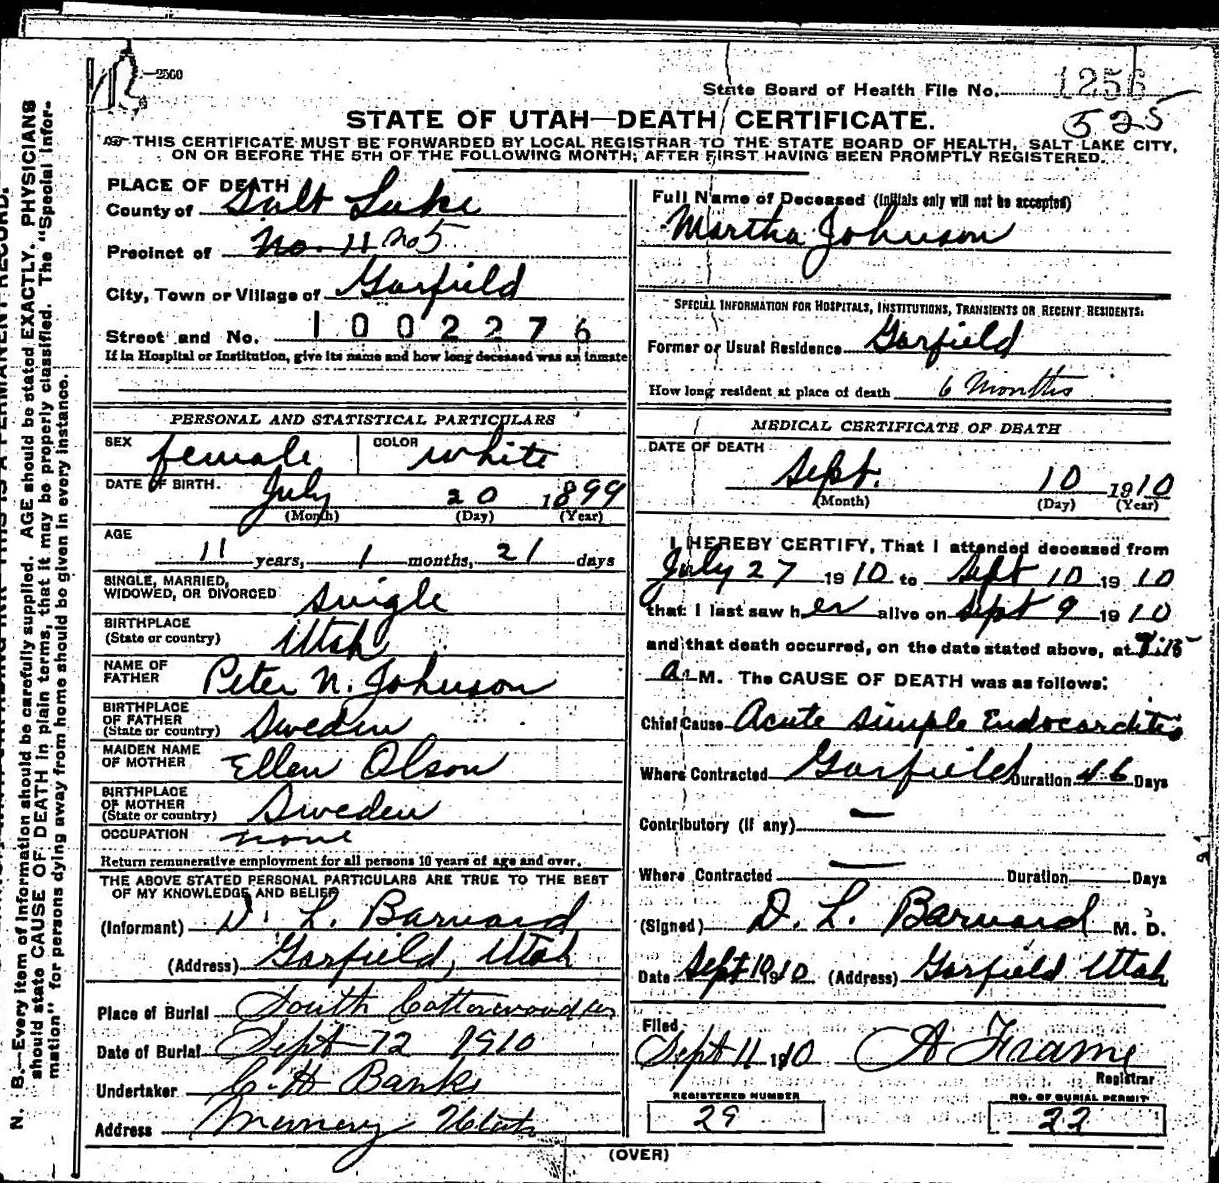 -2500
State Board of Health File No. 1256
525
STATE OF UTAH—DEATH CERTIFICATE.
THIS CERTIFICATE MUST BE FORWARDED BY LOCAL REGISTRAR TO THE STATE BOARD OF HEALTH, SALT LAKE CITY,
ON OR BEFORE THE 5TH OF THE FOLLOWING MONTH, AFTER FIRST HAVING BEEN PROMPTLY REGISTERED.
PLACE OF DEATH
County of Salt Lake
Precinct of No. 11 no 5
City, Town or Village of Garfield
Street and No. 1002276
If in Hospital or Institution, give its name and how long deceased was an inmate
PERSONAL AND STATISTICAL PARTICULARS
SEX female COLOR white
DATE OF BIRTH. July 20 1899
(Month) (Day) (Year)
AGE
11 years, 1 months, 21 days
SINGLE, MARRIED,
WIDOWED, OR DIVORCED single
BIRTHPLACE
(State or country) Utah
NAME OF
FATHER Peter N. Johnson
BIRTHPLACE
OF FATHER
(State or country) Sweden
MAIDEN NAME
OF MOTHER Ellen Olson
BIRTHPLACE
OF MOTHER
(State or country) Sweden
OCCUPATION none
Return remunerative employment for all persons 10 years of age and over.
THE ABOVE STATED PERSONAL PARTICULARS ARE TRUE TO THE BEST
OF MY KNOWLEDGE AND BELIEF
(Informant) D. L. Barnard
(Address) Garfield, Utah
Place of Burial South Cottonwood
Date of Burial Sept 12 1910
Undertaker C. H Banks
Address Murray Utah
Full Name of Deceased (Initials only will not be accepted)
Martha Johnson
SPECIAL INFORMATION FOR HOSPITALS, INSTITUTIONS, TRANSIENTS OR RECENT RESIDENTS:
Former or Usual Residence Garfield
How long resident at place of death 6 Months
MEDICAL CERTIFICATE OF DEATH
DATE OF DEATH
Sept. 10 1910
(Month) (Day) (Year)
I HEREBY CERTIFY, That I attended deceased from
July 27 1910 to Sept 10 1910
that I last saw her alive on Sept 9 1910
and that death occurred, on the date stated above, at
a. M. The CAUSE OF DEATH was as follows:
Chief Cause Acute Simple Endocarditis
Where Contracted Garfield Duration 46 Days
Contributory (if any) —
Where Contracted — Duration Days
(Signed) D. L. Barnard M. D.
Date Sept 10 1910 (Address) Garfield Utah
Filed
Sept 11 1910 A Frame
Registrar
REGISTERED NUMBER
29
NO. OF BURIAL PERMIT
22
(OVER)
N. B.—Every item of information should be carefully supplied. AGE should be stated EXACTLY. PHYSICIANS
should state CAUSE OF DEATH in plain terms, that it may be properly classified. The "Special Infor-
mation" for persons dying away from home should be given in every instance.
THIS IS A PERMANENT RECORD.